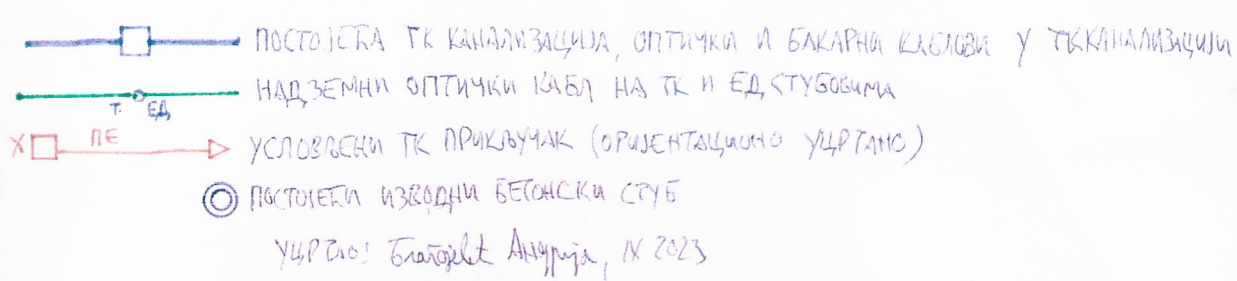 ПОСТОЈЕЋА ТК КАНАЛИЗАЦИЈА, ОПТИЧКИ И БАКАРНИ КАБЛОВИ У ТК КАНАЛИЗАЦИЈИ
НАДЗЕМНИ ОПТИЧКИ КАБЛ НА ТК И ЕД СТУБОВИМА
Т. ЕД
Х ПЕ УСЛОВЉЕНИ ТК ПРИКЉУЧАК (ОРИЈЕНТАЦИОНО УЦРТАНО)
ПОСТОЈЕЋИ ИЗВОДНИ БЕТОНСКИ СТУБ
УЦРТАО: Андрија, IX 2023